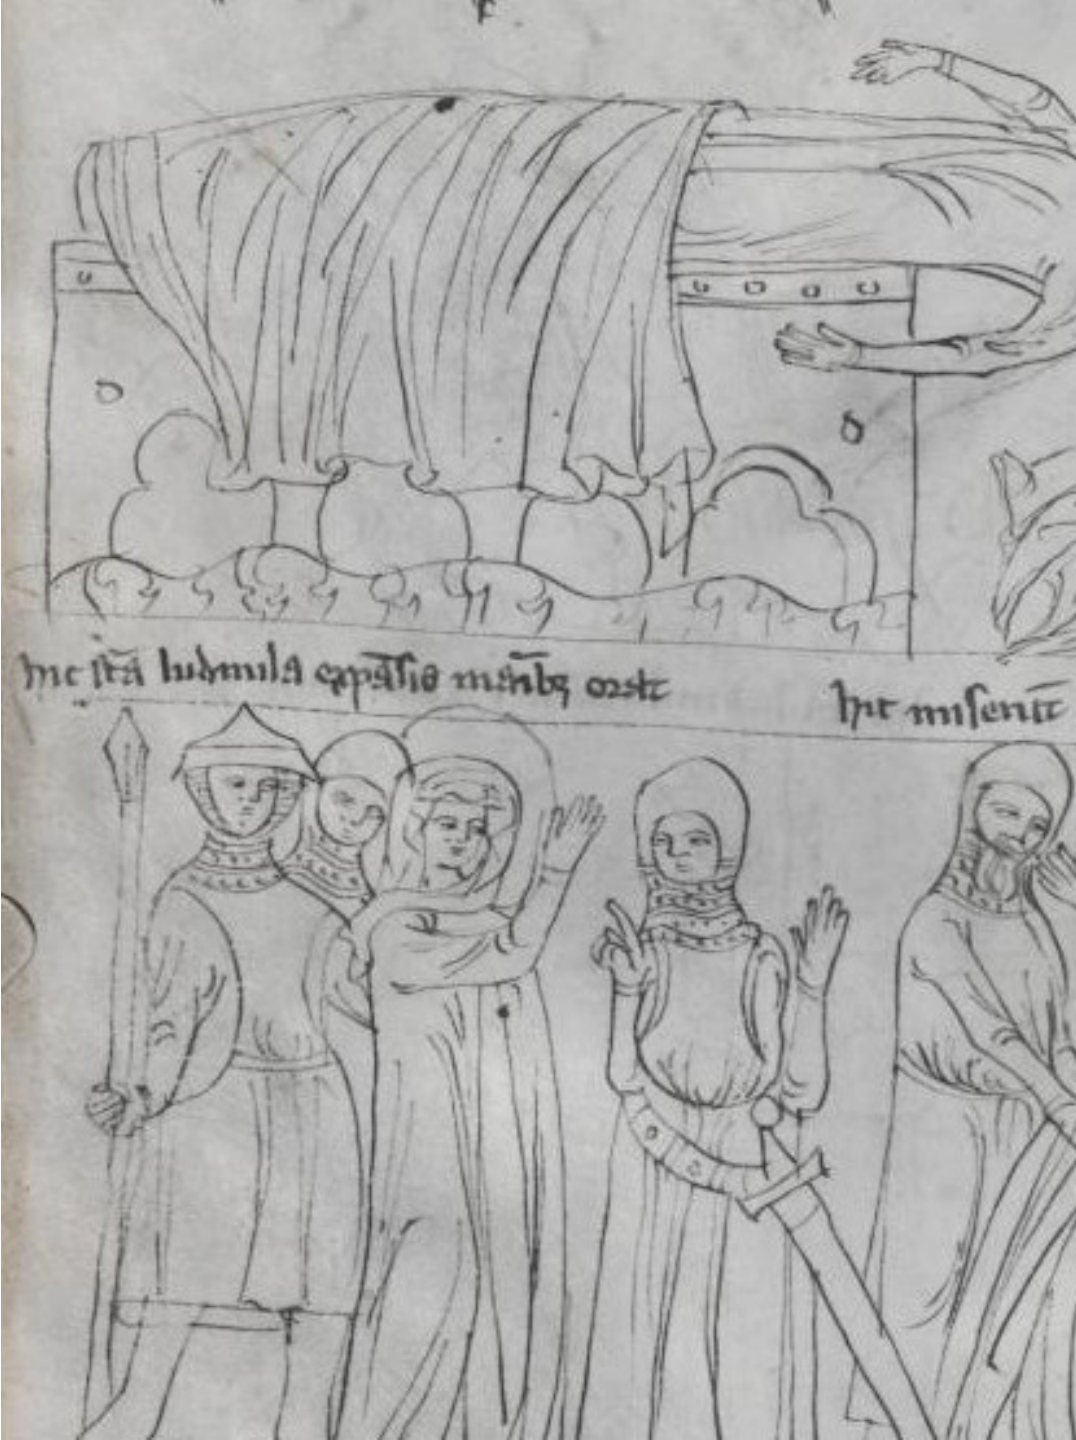 hic s̄cā ludmila exp̄ās̄is mān̄ibꝫ orat
hic miserūt